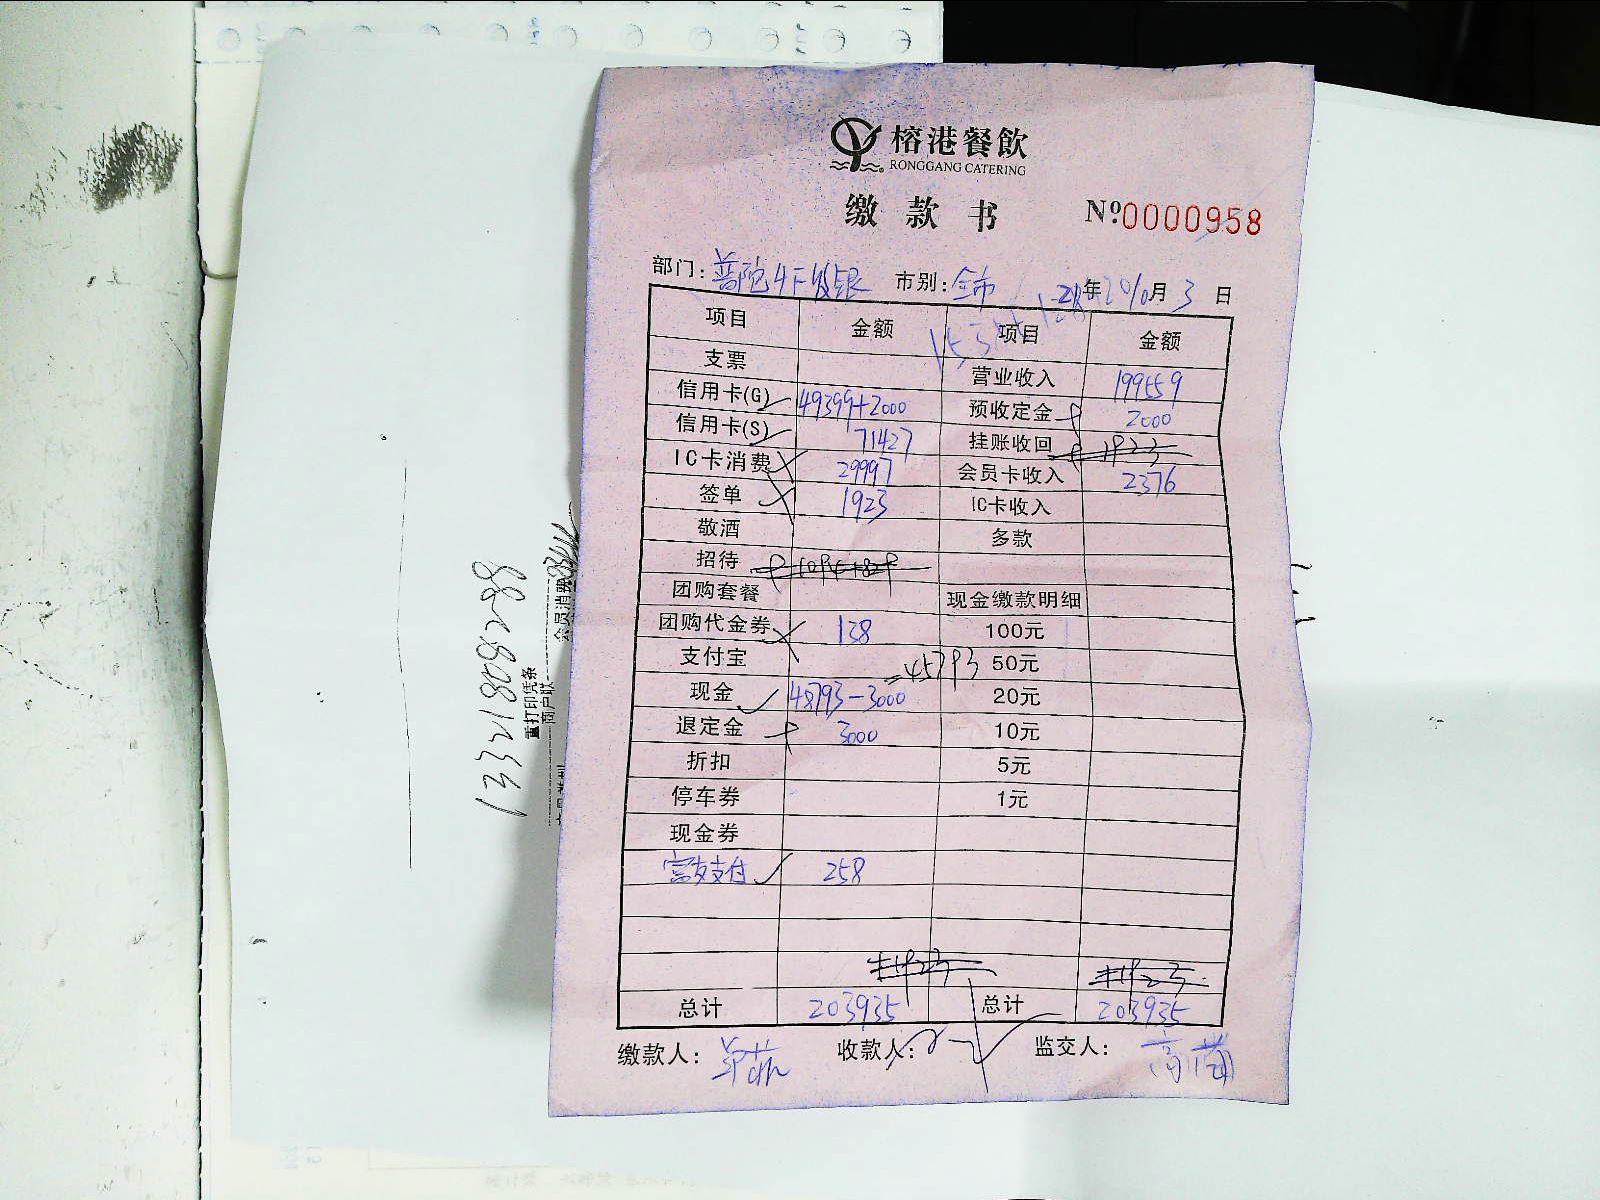 榕港餐飲
RONGGANG CATERING
缴款书 Nº0000958
部门: 普陀4F收银 市别: 全市 年 月 3 日
项目 金额 项目 金额
支票 营业收入 199559
信用卡(G) 49399+2000 预收定金 2000
信用卡(S) 71427 挂账收回 1923
IC卡消费 29997 会员卡收入 2376
签单 1923 IC卡收入
敬酒 多款
招待
团购套餐 现金缴款明细
团购代金券 138 100元
支付宝 =45793 50元
现金 48793-3000 20元
退定金 3000 10元
折扣 5元
停车券 1元
现金券
富友支付 258
+1923 +1923
总计 203935 总计 203935
缴款人: 收款人: 监交人:
13321808288
重打印凭条
商户联
会员消费